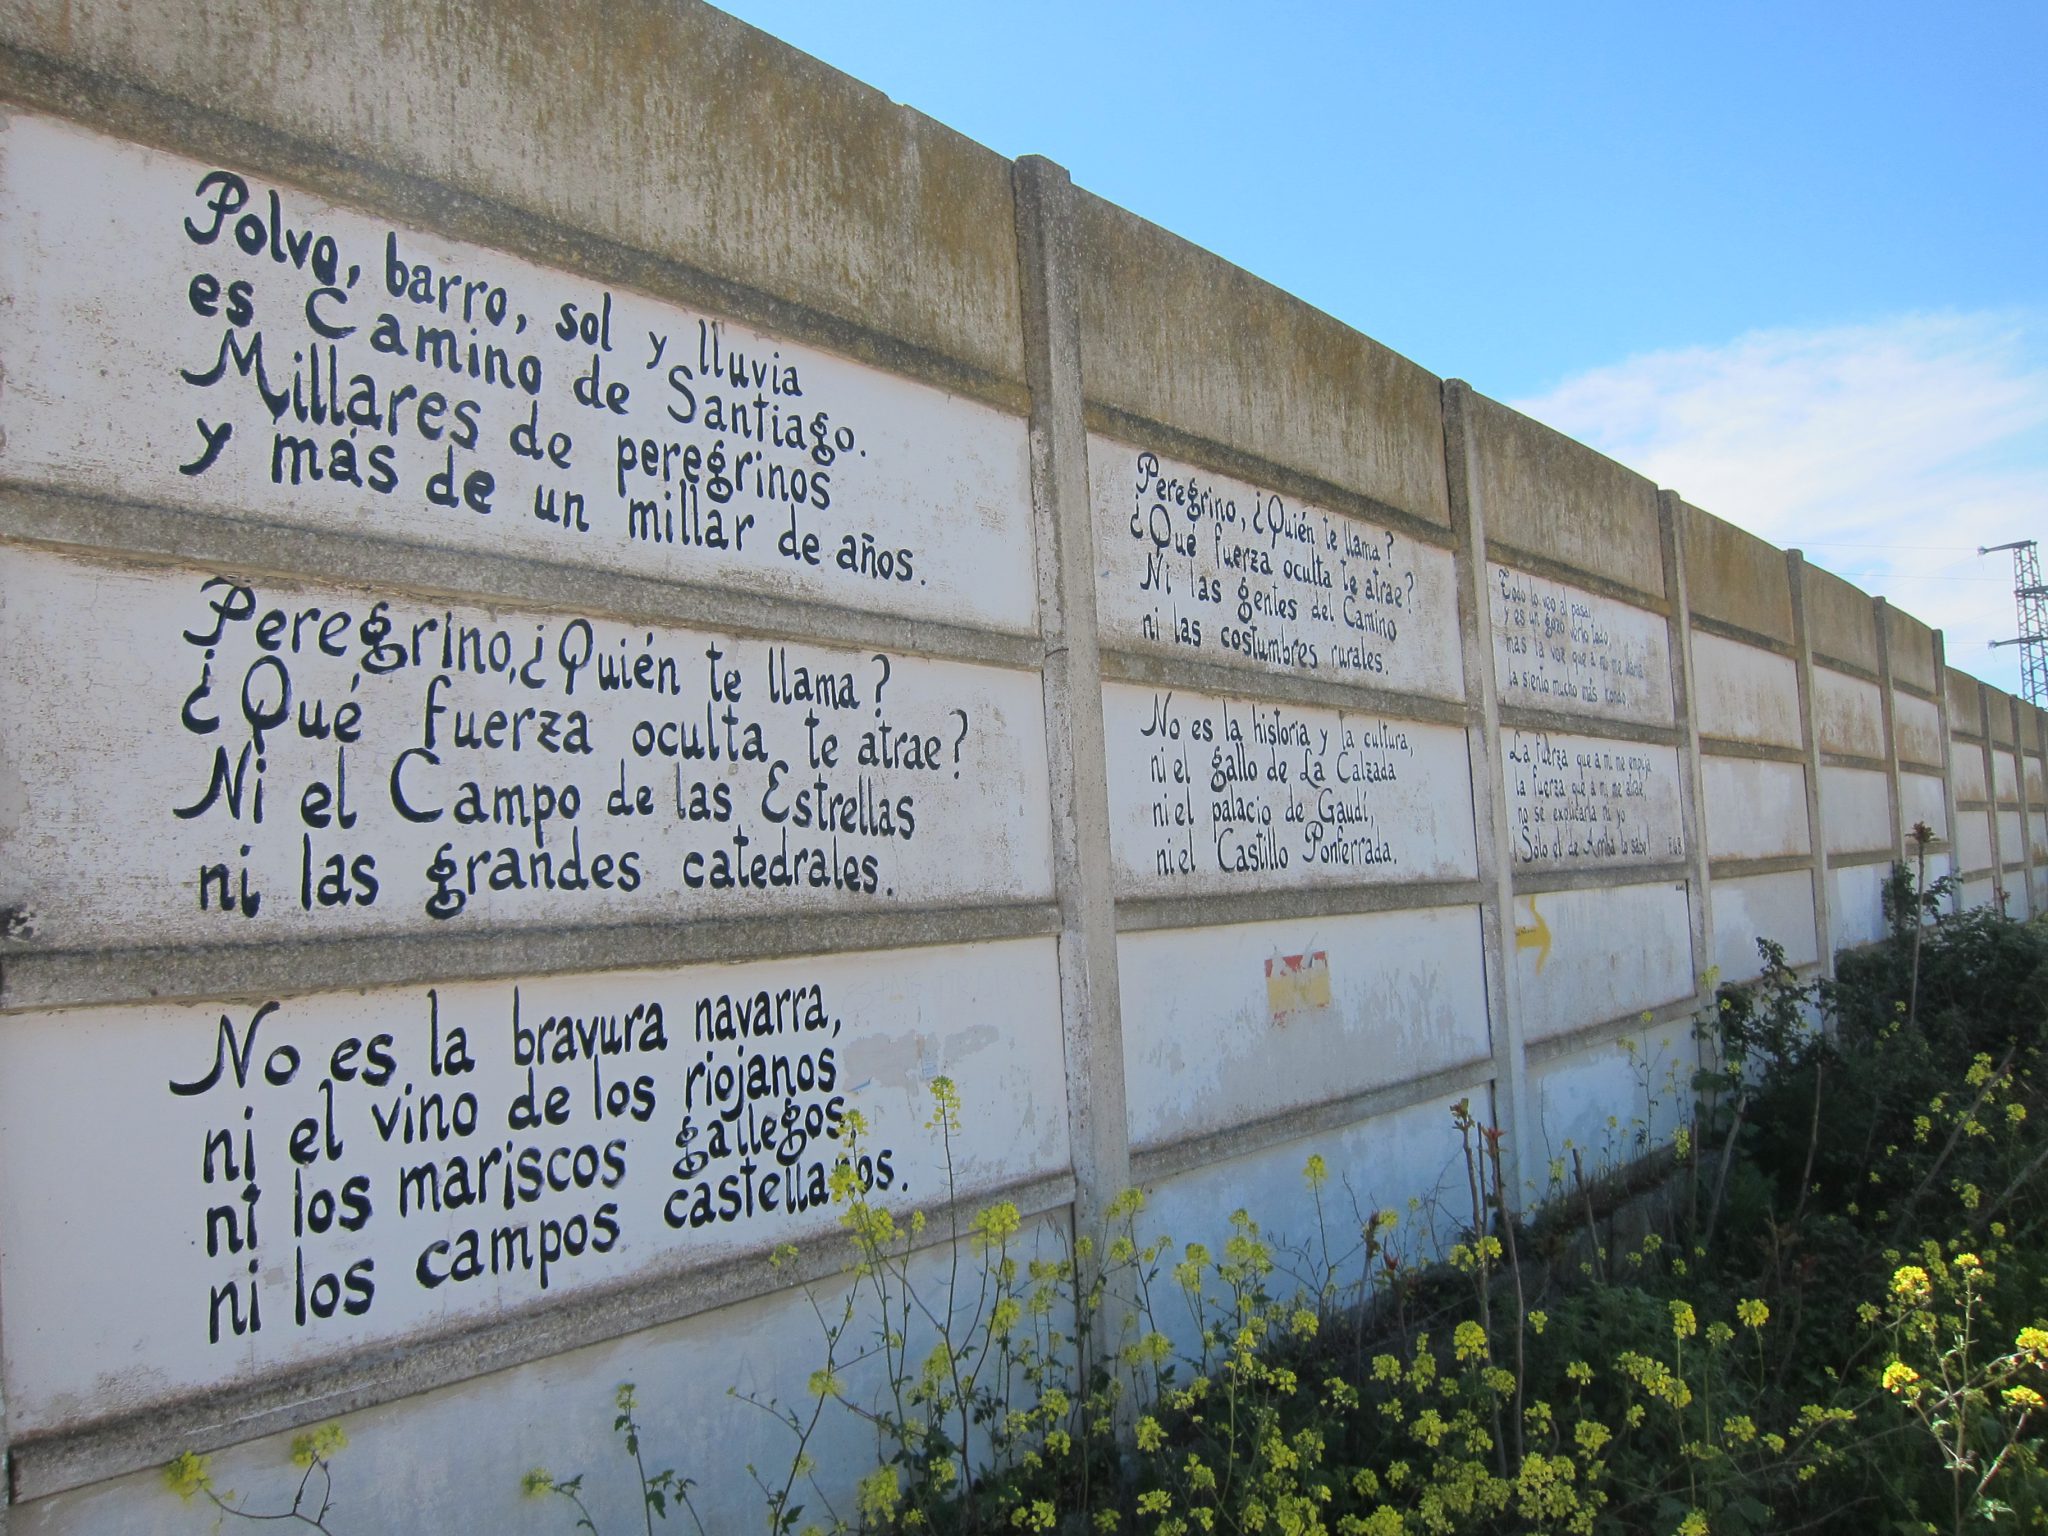 Polvo, barro, sol y lluvia
es Camino de Santiago.
Millares de peregrinos
y más de un millar de años.
Peregrino,¿Quién te llama?
¿Qué fuerza oculta te atrae?
Ni el Campo de las Estrellas
ni las grandes catedrales.
No es la bravura navarra,
ni el vino de los riojanos
ni los mariscos gallegos,
ni los campos castellanos.
Peregrino, ¿Quién te llama?
¿Qué fuerza oculta te atrae?
Ni las gentes del Camino
ni las costumbres rurales.
No es la historia y la cultura,
ni el gallo de La Calzada
ni el palacio de Gaudí,
ni el Castillo Ponferrada.
Todo lo veo al pasar,
y es un gozo verlo todo,
mas la voz que a mi me llama
la siento mucho más hondo.
La fuerza que a mi me empuja
la fuerza que a mi me atrae,
no se explicarla ni yo
¡Sólo el de Arriba lo sabe! E.G.B.